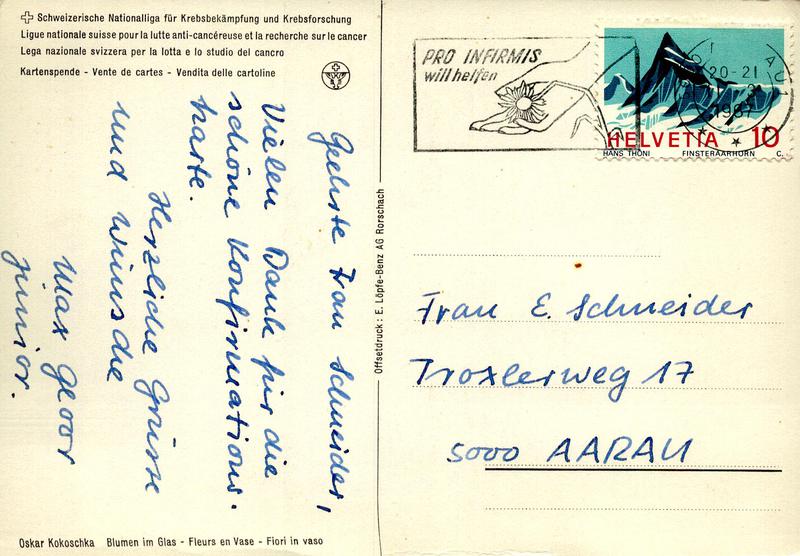 Schweizerische Nationalliga für Krebsbekämpfung und Krebsforschung
Ligue nationale suisse pour la lutte anti-cancéreuse et la recherche sur le cancer
Lega nazionale svizzera per la lotta e lo studio del cancro
Kartenspende - Vente de cartes - Vendita delle cartoline
Geehrte Frau Schneider,
Vielen Dank für die
schöne Konfirmations-
karte.
Herzliche Grüsse
und Wünsche
Max Gloor
junior.
Oskar Kokoschka Blumen im Glas - Fleurs en Vase - Fiori in vaso
Offsetdruck: E. Löpfe-Benz AG Rorschach
PRO INFIRMIS
will helfen
20-21
1967
HELVETIA 10
HANS THÖNI FINSTERAARHORN C.
Frau E. Schneider
Troxlerweg 17
5000 AARAU